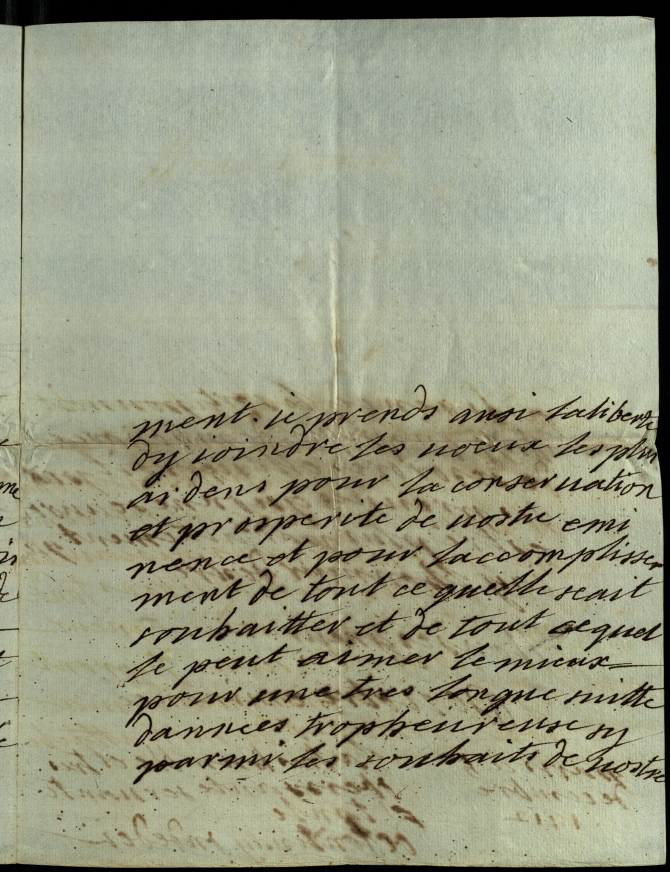 ment. ie prends ausi laliberte
dy ioindre les uoeux les plus
ardens pour la conseruation
et prosperite de uostre emi
nence et pour laccomplisse
ment de tout ce quelle scait
souhaitter et de tout ce quel
le peut aimer le mieux
pour une tres longue suitte
dannees tropheureuse sy
parmi les souhaits de uostre